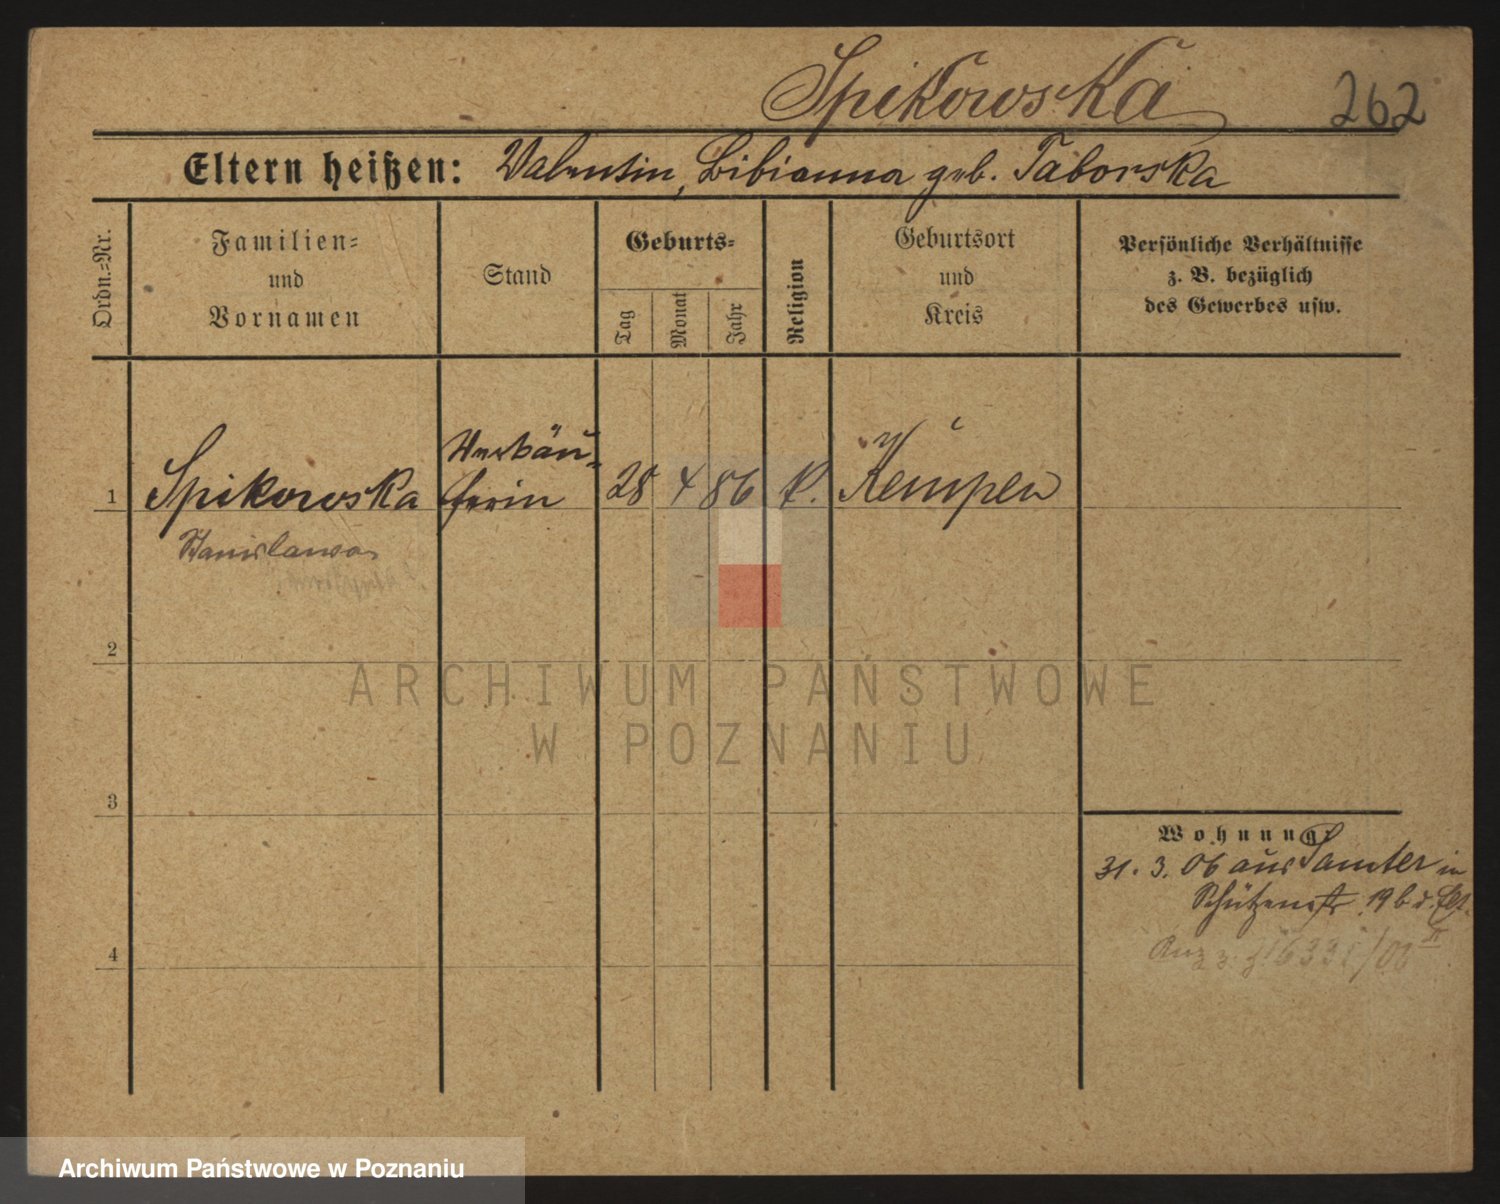 Spikowska
262
Eltern heißen: Valentin, Bibianna geb. Taborska
Ordn.=Nr.
Familien=
und
Vornamen
Stand
Geburts=
Tag
Monat
Jahr
Religion
Geburtsort
und
Kreis
Persönliche Verhältnisse
z. B. bezüglich
des Gewerbes usw.
1
Spikowska
Stanislawa
Verkäu-
ferin
28
4
86
k.
Kempen
2
3
4
Wohnung:
31. 3. 06 aus Samter in
Schützenstr 19 b d.
6331/06 II
ARCHIWUM PAŃSTWOWE
W POZNANIU
Archiwum Państwowe w Poznaniu